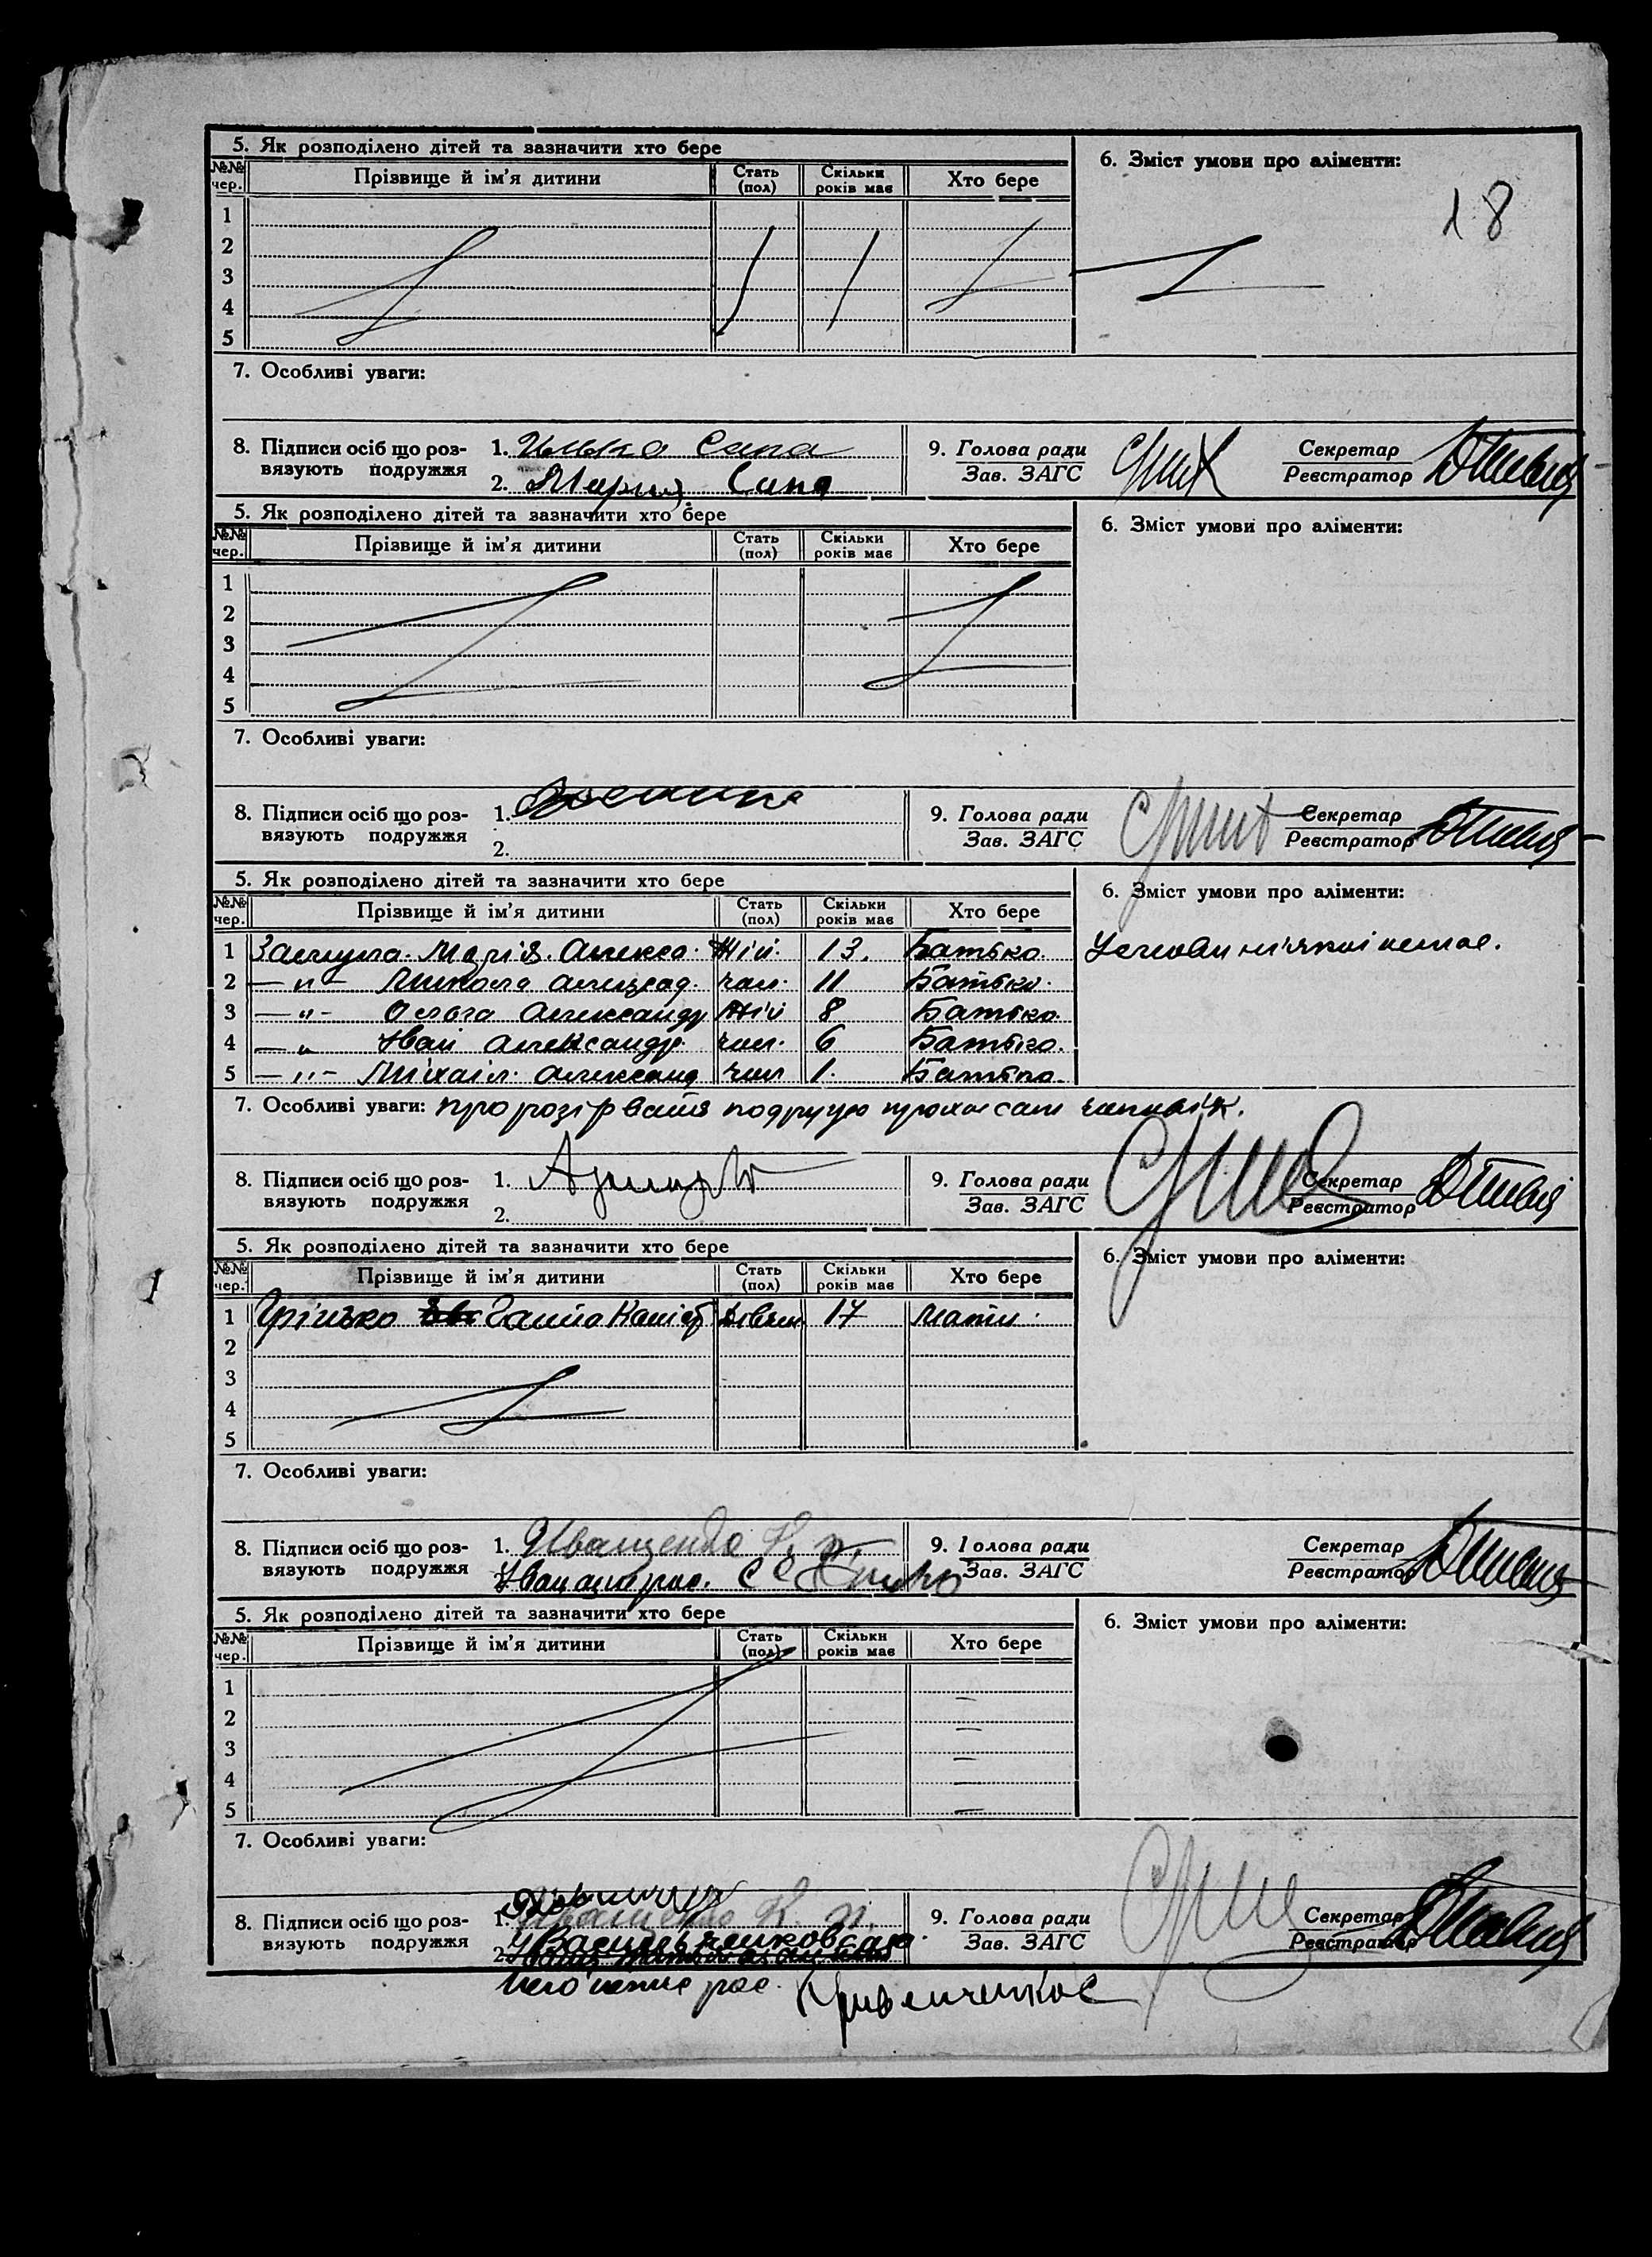 5. Як розподілено дітей та зазначити хто бере
6. Зміст умови про аліменти:
№№ чер. Прізвище й ім'я дитини Стать (пол) Скільки років має Хто бере
18
1
2
3
4
5
7. Особливі уваги:
8. Підписи осіб що роз-вязують подружжя
1. Илько Сапа
2. Мария Сапа
9. Голова ради Зав. ЗАГС
Секретар Реєстратор
5. Як розподілено дітей та зазначити хто бере
6. Зміст умови про аліменти:
№№ чер. Прізвище й ім'я дитини Стать (пол) Скільки років має Хто бере
1
2
3
4
5
7. Особливі уваги:
8. Підписи осіб що роз-вязують подружжя
1.
2.
9. Голова ради Зав. ЗАГС
Секретар Реєстратор
5. Як розподілено дітей та зазначити хто бере
6. Зміст умови про аліменти:
№№ чер. Прізвище й ім'я дитини Стать (пол) Скільки років має Хто бере
1 Марія Алекса. Жін. 13. Батько.
Умови ніякої немає.
2 —"— Микола чол. 11 Батько.
3 —"— Ольга Александр Жін 8 Батько.
4 —"— Іван Александр. чол. 6 Батько.
5 —"— Міхаіл. Александ чол 1. Батько.
7. Особливі уваги: про розірвання подружжя прохає сам чоловік.
8. Підписи осіб що роз-вязують подружжя
1.
2.
9. Голова ради Зав. ЗАГС
Секретар Реєстратор
5. Як розподілено дітей та зазначити хто бере
6. Зміст умови про аліменти:
№№ чер. Прізвище й ім'я дитини Стать (пол) Скільки років має Хто бере
1 Грінько Ганна 17 мати.
2
3
4
5
7. Особливі уваги:
8. Підписи осіб що роз-вязують подружжя
1. Иващенко К. п.
9. Голова ради Зав. ЗАГС
Секретар Реєстратор
5. Як розподілено дітей та зазначити хто бере
6. Зміст умови про аліменти:
№№ чер. Прізвище й ім'я дитини Стать (пол) Скільки років має Хто бере
1 –
2 –
3 –
4 –
5 –
7. Особливі уваги:
8. Підписи осіб що роз-вязують подружжя
1. Иващенко К. п.
2.
9. Голова ради Зав. ЗАГС
Секретар Реєстратор